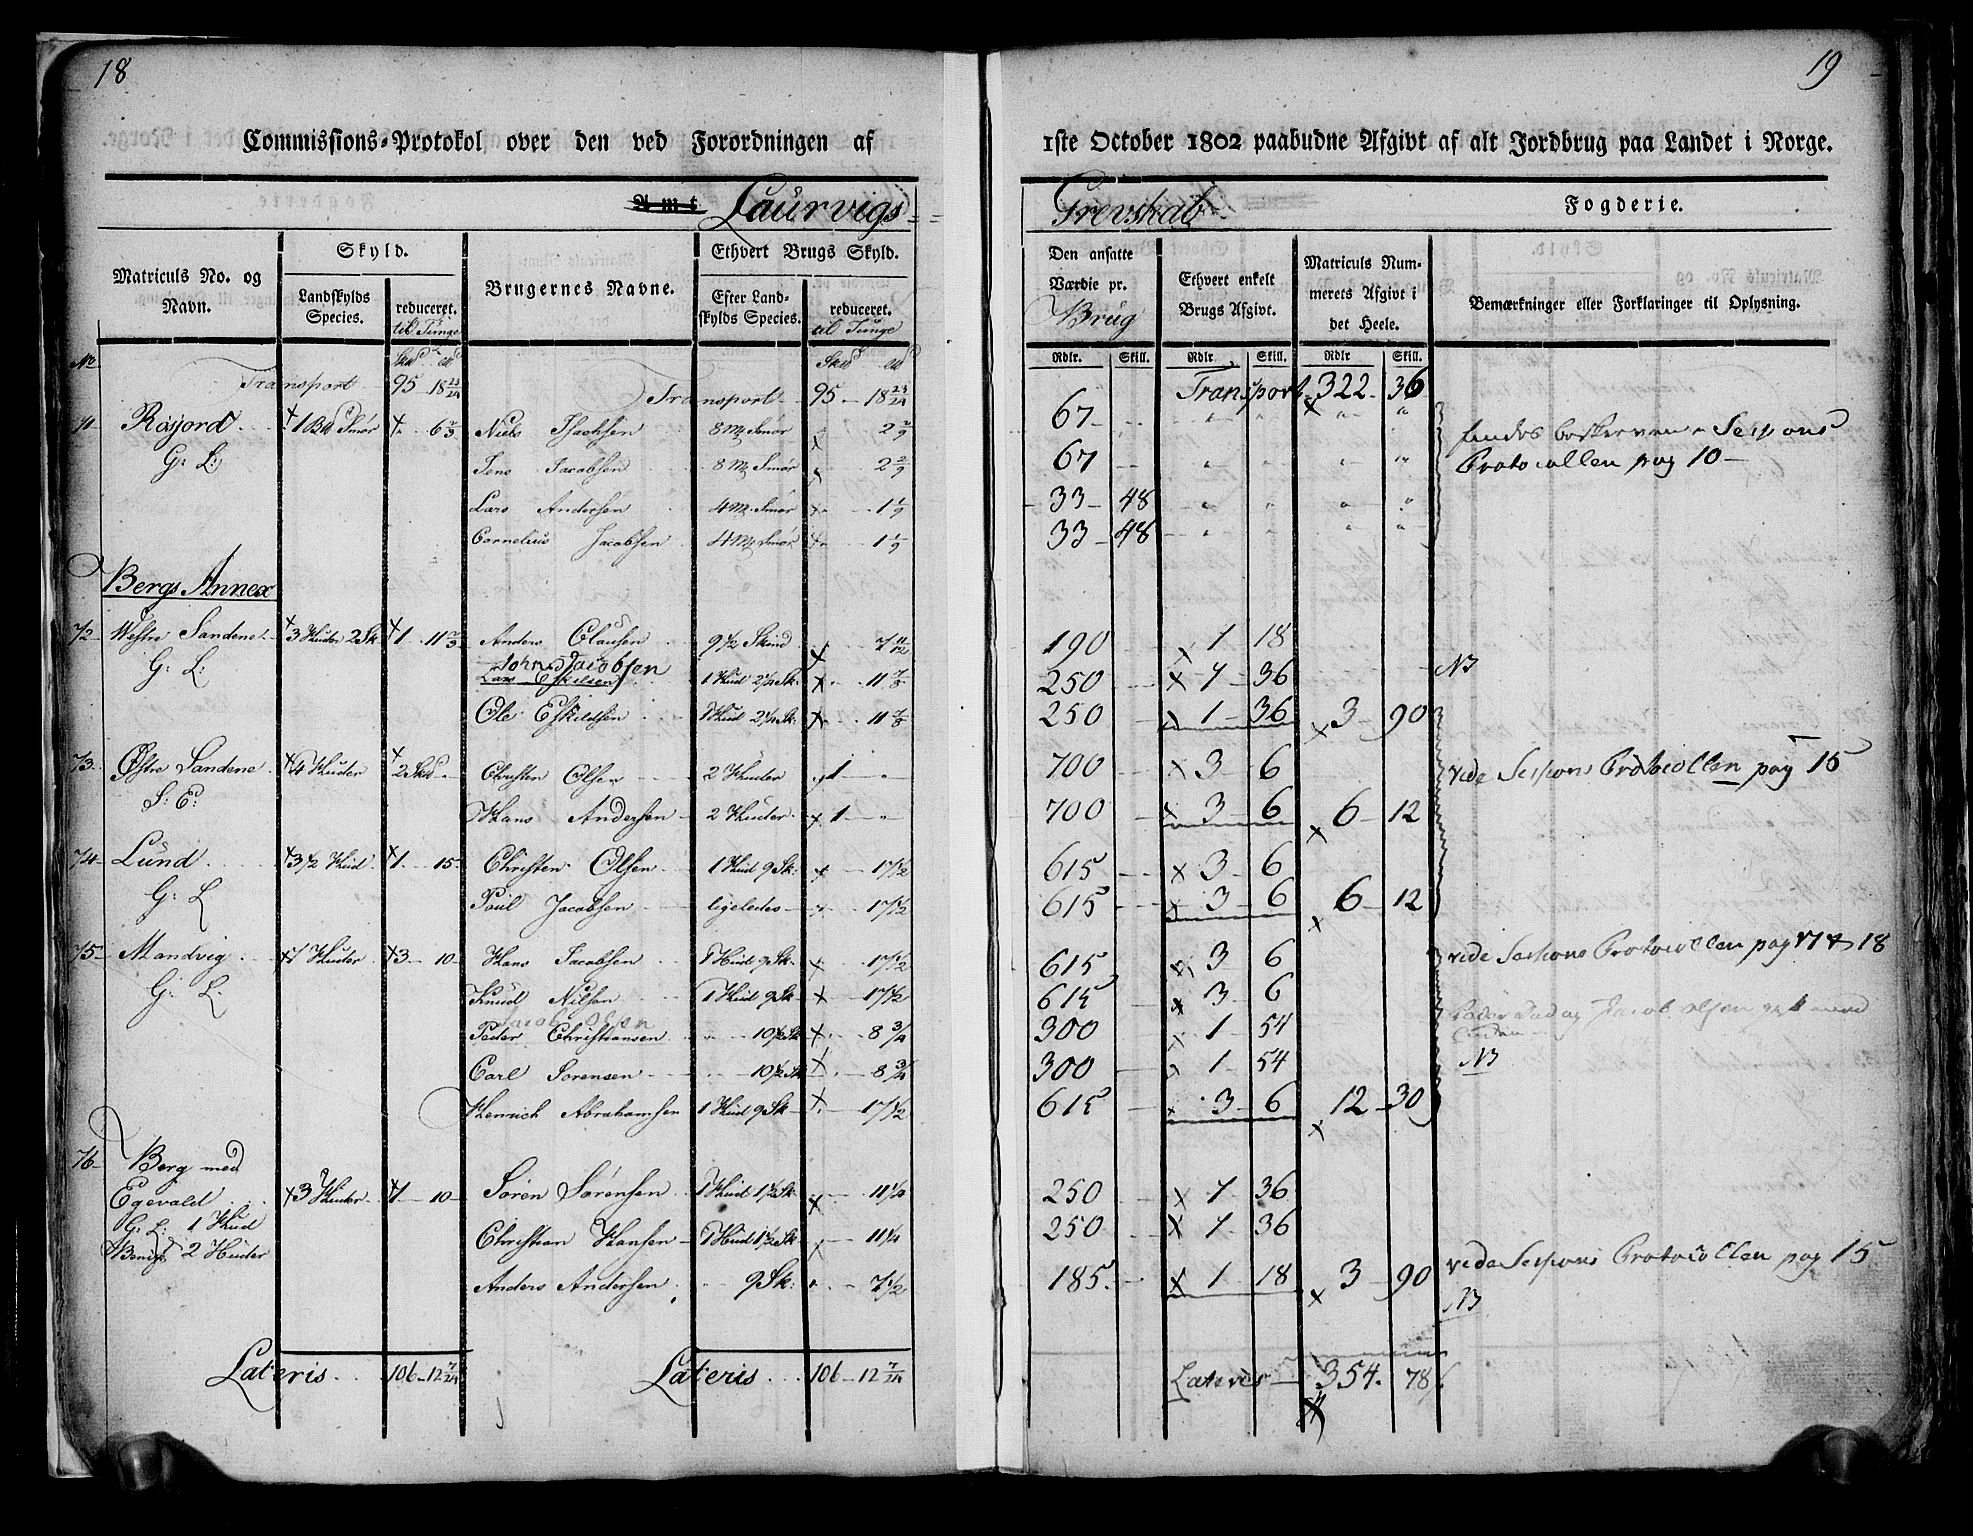 18
Commissions-Protokol over den ved Forordningen af
Amt Laurvigs
Matriculs No. og Navn. | Skyld. Landskylds Species. | reduceret. til Tunge | Brugernes Navne. | Ethvert Brugs Skyld. Efter Landskylds Species. | reduceret. til Tunge
Transport 95 - 18 23/24 Transport 95 - 18 23/24
71 Røsjord 1 Bd Smør 6 2/3 Niels Isachsen 8 Mk Smør 2 2/9
G: L: Jens Jacobsen 8 Mk Smør 2 2/9
Lars Andersen 4 Mk Smør 1 1/9
Cornelius Jacobsen 4 Mk Smør 1 1/9
Bergs Annex
72 Westre Sandene 3 Huder 2 Sk 1 - 11 2/3 Anders Clausen 9 1/2 Skind 7 11/12
G: L: John Jacobsen
Lars Eskilsen 1 Hud 2 1/4 Sk: 11 7/8
Ole Eskildsen 1 Hud 2 1/4 Sk: 11 7/8
73 Østre Sandene 4 Huder 2 Skd Christen Olsen 2 Huder 1 -
S: E: Hans Andersen 2 Huder 1 -
74 Lund 3 1/2 Hud 1 - 15 Christen Olsen 1 Hud 9 Sk: 17 1/2
G: L Poul Jacobsen ligeledes 17 1/2
75 Mandvig 7 Huder 3 - 10 Hans Jacobsen 1 Hud 9 Sk. 17 1/2
G: L: Knud Nilsen 1 Hud 9 Sk 17 1/2
Jacob Olsen
Peder Christiansen 10 1/2 Sk 8 3/4
Carl Sørensen 10 1/2 Sk 8 3/4
Henrich Abrahamsen 1 Hud 9 Sk 17 1/2
76 Berg med
Egevald 3 Huder 1 - 10 Søren Sørensen 1 Hud 1 1/2 Sk 11 1/4
G: L: 1 Hud
Christian Hansen 1 Hud 1 1/2 Sk 11 1/4
2 Huder
Anders Andersen 9 Sk: 7 1/2
Lateris 106 - 12 7/24 Lateris 106 - 12 7/24
19
1ste October 1802 paabudne Afgivt af alt Jordbrug paa Landet i Norge.
Grevskab Fogderie.
Den ansatte Værdie pr. Brug | Ethvert enkelt Brugs Afgivt. | Matriculs Nummerets Afgivt i det Heele. | Bemærkninger eller Forklaringer til Oplysning.
Rdlr. Skill. Rdlr Skill. Rdlr Skill.
Transport 322 - 36
67
67 findes beskreven Sessions Protocollen pag 10
33 - 48
33 - 48
190 1 18
250 1 - 36 NB
250 1 - 36 3 - 90
700 3 - 6 vide Sessions Protocollen pag 15
700 3 - 6 6 - 12
615 3 - 6
615 3 - 6 6 - 12
615 3 6 vide Sessions Protocollen pag 17 & 18
615 3 - 6
300 1 - 54 Jacob Olsen
300 1 - 54 NB
615 3 - 6 12 - 30
250 1 - 36
250 1 - 36
185 1 - 18 3 - 90 vide Sessions Protocollen pag 15
NB
Lateris 354. 78